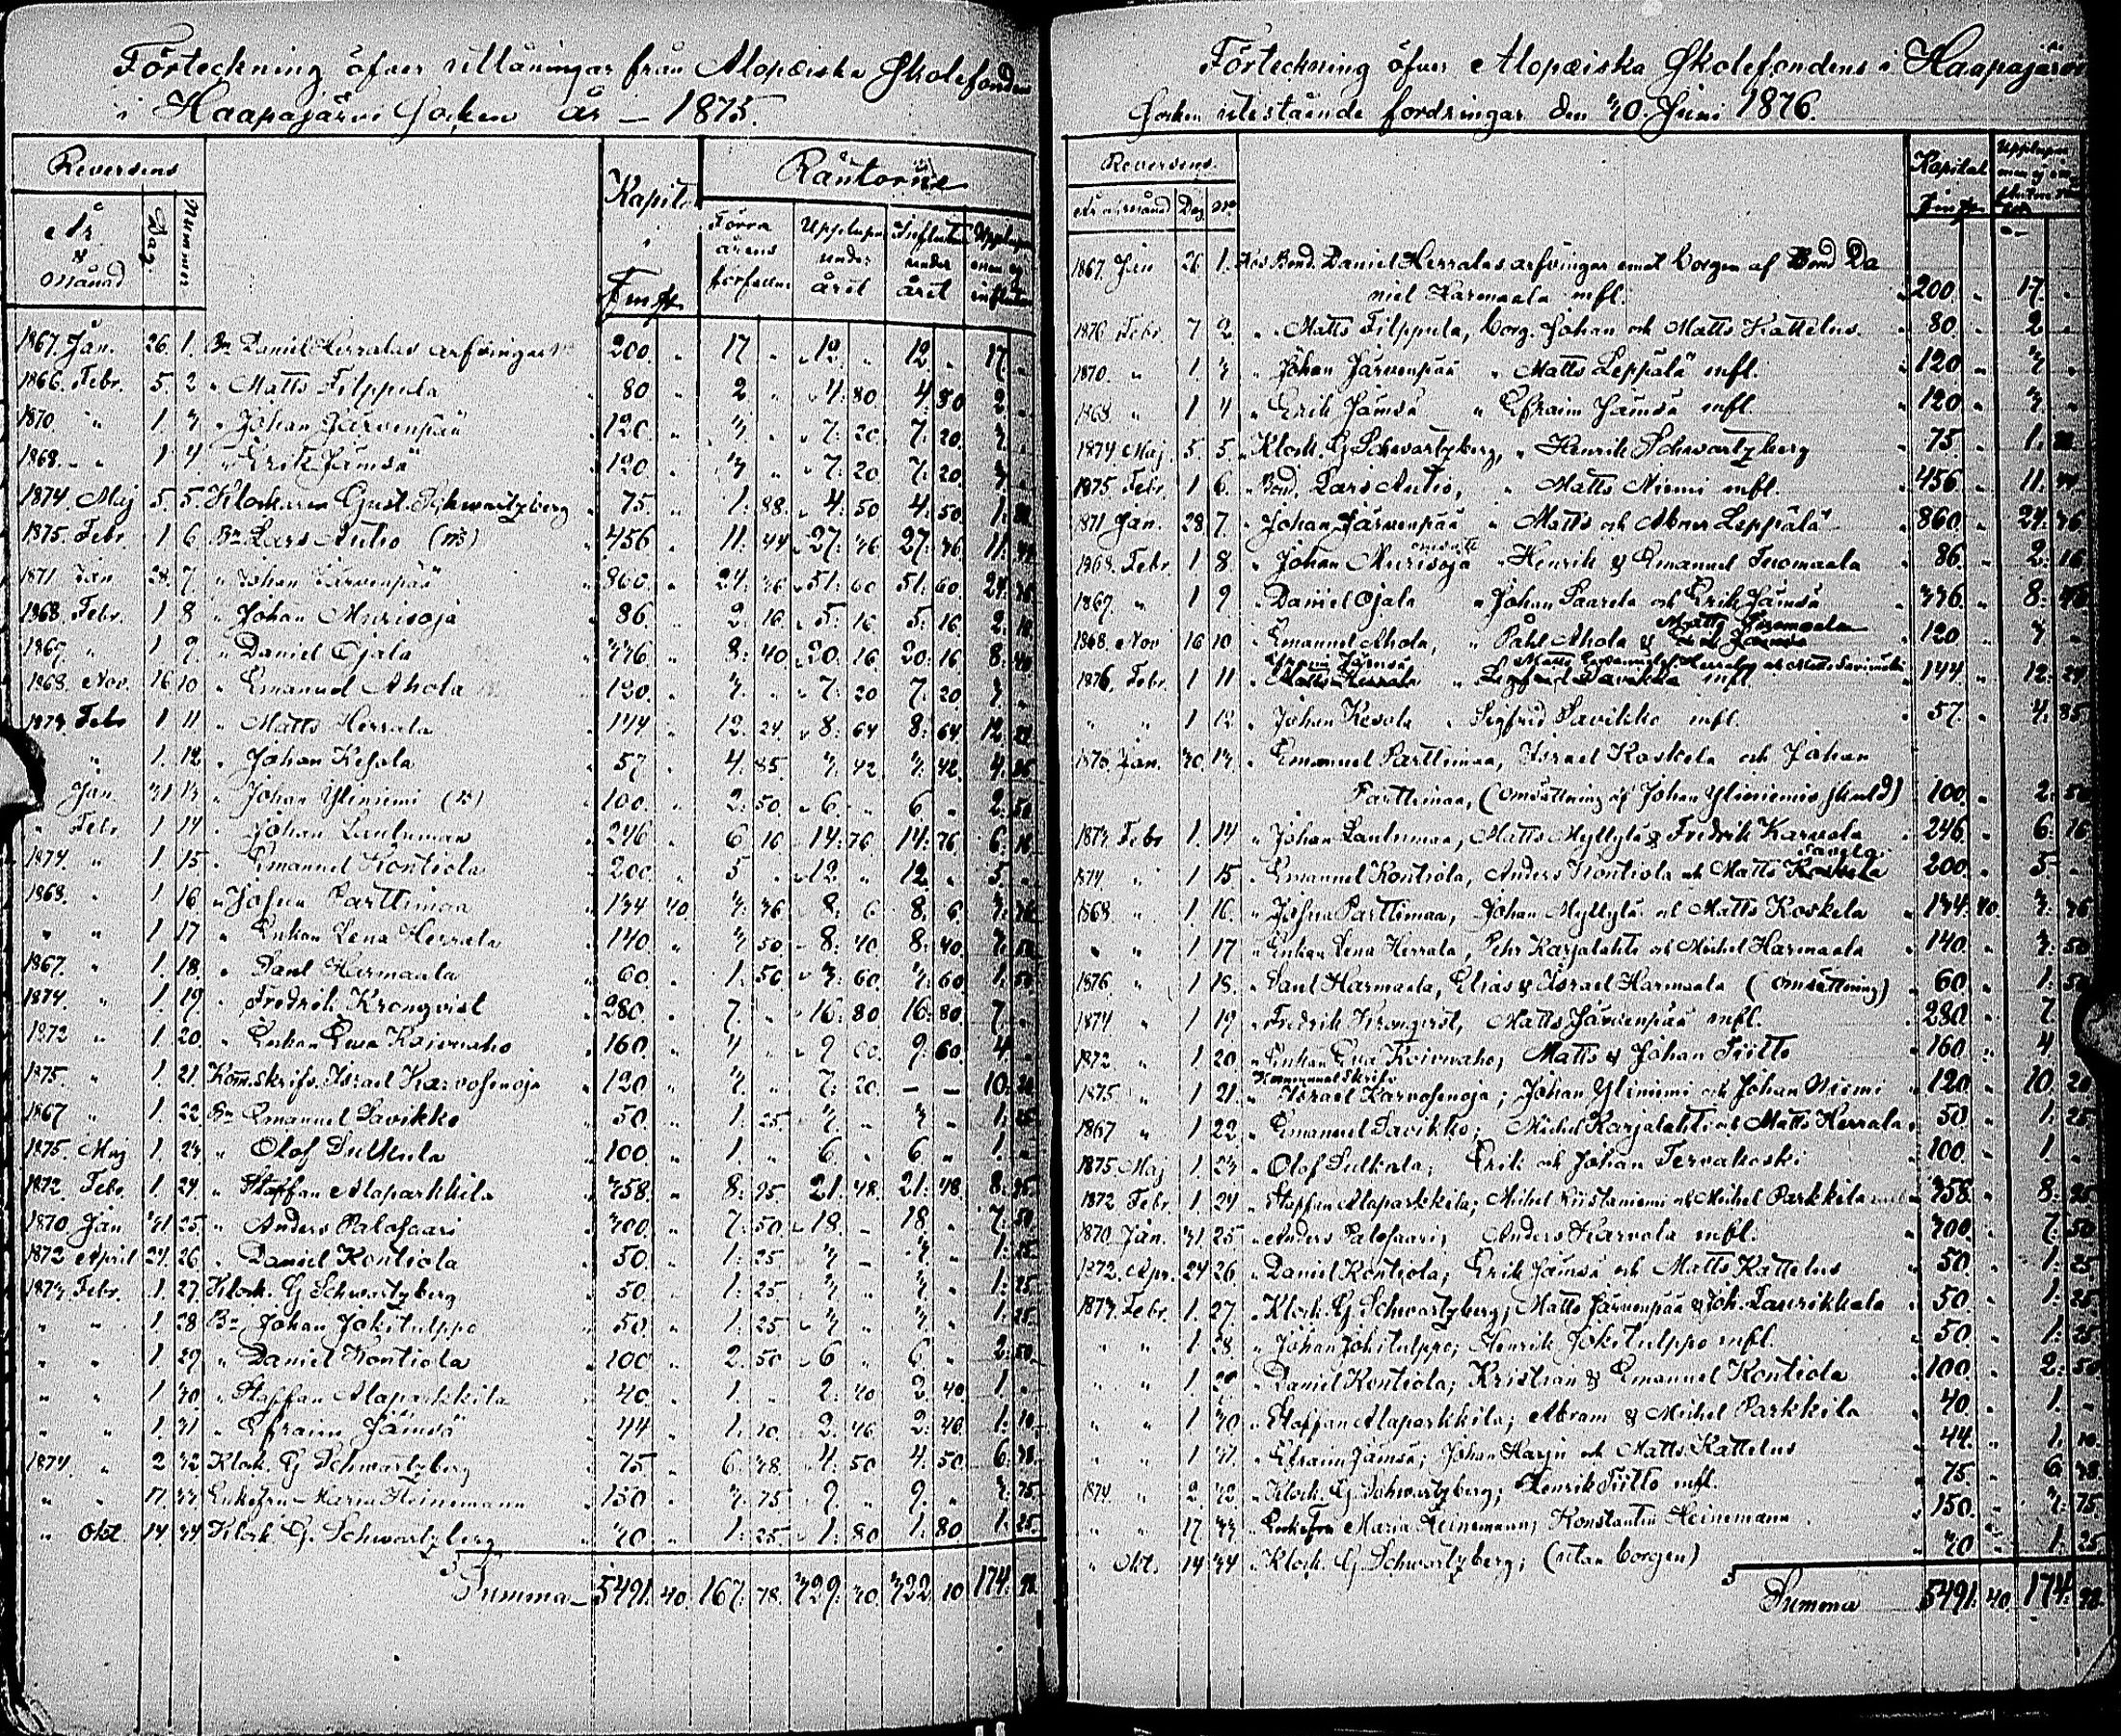 Förteckning öfver utlåningar från Alopæiska Skolefonden
i Haapajärvi Socken år — 1875.
Reversens Kapit. Räntorne
År & Månad Dag Nummer Fmk Förra årens Upplupn under året Influtn under året Upplupn men ej influtn
1867. Jan. 26. 1. Bn Daniel Herralas arfvingar 200. " 17 " 12 " 12 " 17. "
1866. Febr. 5. 2 " Matts Filppula 80 " 2 " 4. 80. 4. 80 2 "
1870. " 1 3 " Johan Järvenpää 120. " 3. " 7. 20 7. 20. 3. "
1868. " 1 4 " Erik Jämsä 120 " 3 " 7. 20 7. 20 3 "
1874 Maj 5. 5 Klockaren Gust. Schwartzberg 75. " 1. 88. 4. 50 4. 50. 1. 88
1875. Febr. 1 6 Bn Lars Autio 456 " 11. 44 27. 36 27. 36 11. 44
1871 Jan 28. 7 " Johan Järvenpää 860. " 24. 36 51. 60 51. 60 24. 36
1868. Febr. 1 8 " Johan Murisoja 86. " 2. 16 5. 16. 5. 16. 2. 16
1867. " 1 9. " Daniel Ojala 336. " 8. 40 20. 16 20. 16 8. 40
1868. Nov. 16 10 " Emanuel Ahola 120. " 3. " 7. 20 7. 20 3. "
1873. Febr 1 11 " Matts Herrala 144 " 12. 24. 8. 64 8. 64 12. 24
" 1. 12. " Johan Kesola 57 " 4. 85. 3. 42 3. 42. 4. 85
" Jan 31 13 " Johan Yliniemi 100. " 2. 50 6. " 6 " 2. 50
" Febr 1 14 " Johan Lauluman 246 " 6. 16 14. 76 14. 76 6. 16
1874 " 1. 15. " Emanuel Kontiola 200. " 5 " 12. " 12 " 5. "
1868. " 1 16. " Josua Parttimaa 134 40 3. 36 8. 6 8. 6 3. 36
" " 1 17 " Enkan Lena Herrala 140. " 3 50 8. 40 8. 40. 3. 50
1867. " 1. 18. " Paul Harmaala 60. " 1. 50 3. 60 3. 60 1. 50
1874. " 1. 19. " Fredrik Kronqvist 280. " 7. " 16. 80 16. 80 7. "
1872 " 1. 20. " Enkan Ewa Koivuaho 160. " 4 " 9. 60. 9. 60 4 "
1875. " 1. 21. Kom.skrifv. Israel Karvosenoja 120 " 3. " 7. 20. — — 10. 20
1867 " 1. 22. Bn Emanuel Savikko 50. " 1. 25 3. " 3. " 1. 25
1875. Maj 1. 23. " Olof Sulkula 100. " 1. " 6. " 6 " 1. "
1872. Febr. 1. 24. " Staffan Alaparkkila 358. " 8. 95 21. 48. 21. 48. 8. 95
1870 Jan 31 25. " Anders Palosaari 300. " 7. 50 18. " 18 " 7. 50
1872 April 24. 26. " Daniel Kontiola 50. " 1. 25 3 " 3. " 1. 25
1873. Febr. 1. 27. Klock. G Schwartzberg 50. " 1. 25. 3. " 3. " 1. 25
" " 1. 28 Bn Johan Jokitulppo 50. " 1. 25 3 " 3. " 1. 25
" " 1. 29 " Daniel Kontiola 100 " 2. 50 6 " 6 " 2. 50
" " 1 30 " Staffan Alaparkkila 40. " 1. " 2. 40 2. 40 1. "
" " 1. 31 " Efraim Jämsä 44 " 1. 10. 2. 46 2. 46. 1. 10
1874. " 2 32. Klock. G Schwartzberg 75 " 6. 38. 4. 50 4. 50. 6. 38
" " 17. 33 Enkefru Maria Heinemann 150 " 3. 75 9. " 9. " 3. 75
" Okt. 14. 34 Klock. G. Schwartzberg 30 " 1. 25 1. 80 1. 80 1. 25
Summa 5491. 40. 167. 78. 329. 30. 322. 10 174. 98
Förteckning öfver Alopæiska Skolefondens i Haapajärvi
Socken utestående fordringar den 30. Juni 1876.
Reversens Kapital Upplupn men ej
År o. månad Dag No Fmk
1867. Jan 26. 1. Hos Bond. Daniel Herralas arfvingar emot borgen af Bond Da
niel Harmaala mfl. 200 " 17. "
1876 Febr 7 2. " Matts Filppula, borg. Johan och Matts Kattelus. 80. " 2 "
1870. " 1. 3 " Johan Järvenpää " Matts Leppälä mfl. 120 " 3 "
1868 " 1 4 " Erik Jämsä " Efraim Jämsä mfl. 120 " 3 "
1874 Maj. 5 5. Klock. G Schwartzberg, " Henrik Schwartzberg 75. " 1. 88
1875. Febr. 1 6. " Bond. Lars Autio, " Matts Niemi mfl. 456 " 11. 44
1871 Jan. 28 7. " Johan Järvenpää " Matts och Abner Leppälä 860. " 24. 36
1868. Febr. 1 8. " Johan Murisoja " Henrik & Emanuel Tuomaala 86. " 2. 16
1867. " 1 9 " Daniel Ojala " Johan Saarela och Erik Jämsä 336. " 8. 40
Matts Tuomaala
1868 Nov 16 10 " Emanuel Ahola, " Påhl Ahola & 120 " 3 "
1876. Febr. 1 11 " 144. " 12. 24
" " 1 12. " Johan Kesola " Sigfrid Savikko mfl. 57. " 4. 85
1876 Jan. 30. 13. " Emanuel Parttimaa, Israel Koskela och Johan
Parttimaa, (omsättning af Johan Yliniemis skuld) 100. " 2. 50
1873. Febr 1. 14 " Johan Lauluman, Matts Myllylä & Fredrik Karvola 246. " 6. 16
1874. " 1 15 " Emanuel Kontiola, Anders Kontiola och Matts 200. " 5. "
1868 " 1 16. " Josua Parttimaa, Johan Myllylä och Matts Koskela 134. 40. 3. 36
" " 1 17 " Enkan Lena Herrala, Pehr Karjalahti och Michel Harmaala 140. " 3. 50
1876 " 1 18. " Paul Harmaala, Elias & Israel Harmaala (omsättning) 60 " 1. 50
1874 " 1 19 " Fredrik Kronqvist, Matts Järvenpää mfl. 280 " 7 "
1872 " 1 20 " Enkan Eva Koivuaho, Matts & Johan Tiitto 160 " 4 "
Kommunalskrifv.
1875 " 1 21. " Israel Karvosenoja; Johan Yliniemi och Johan Niemi 120 " 10. 20
1867 " 1 22 " Emanuel Savikko; Michel Karjalahti och Matts Herrala 50. " 1. 25
1875. Maj. 1. 23 " Olof Sulkula; Erik och Johan Tervakoski 100 " 1. "
1872 Febr 1. 24 " Staffan Alaparkkila; Michel Kiistaniemi och Michel Parkkila 358. " 8. 95
1870. Jan. 31. 25 " Anders Palosaari; Anders Karvola mfl. 300. " 7. 50
1872. Apr. 24 26 " Daniel Kontiola; Erik Jämsä och Matts Kattelus 50. " 1. 25
1873 Febr. 1. 27. " Klock. G Schwartzberg; Matts Järvenpää & Joh. Taurikkala 50. " 1. 25
" " 1 28. " Johan Jokitulppo; Henrik Jokitulppo mfl. 50. " 1. 25
" " 1. 29 " Daniel Kontiola; Kristian & Emanuel Kontiola 100. " 2. 50
" " 1 30 " Staffan Alaparkkila; Abram & Michel Parkkila 40. " 1. "
" " 1 31. " Efraim Jämsä; Johan Harju och Matts Kattelus 44. " 1. 10
1874. " 2. 32 " Klock. G Schwartzberg; Henrik Tiitto mfl. 75. " 6. 38
" " 17 33 " Enkefru Maria Heinemann; Konstantin Heinemann 150. " 3. 75
" Okt. 14 34 " Klock. G Schwartzberg; (utan borgen) 30 " 1. 25
Summa 5491. 40. 174. 98.